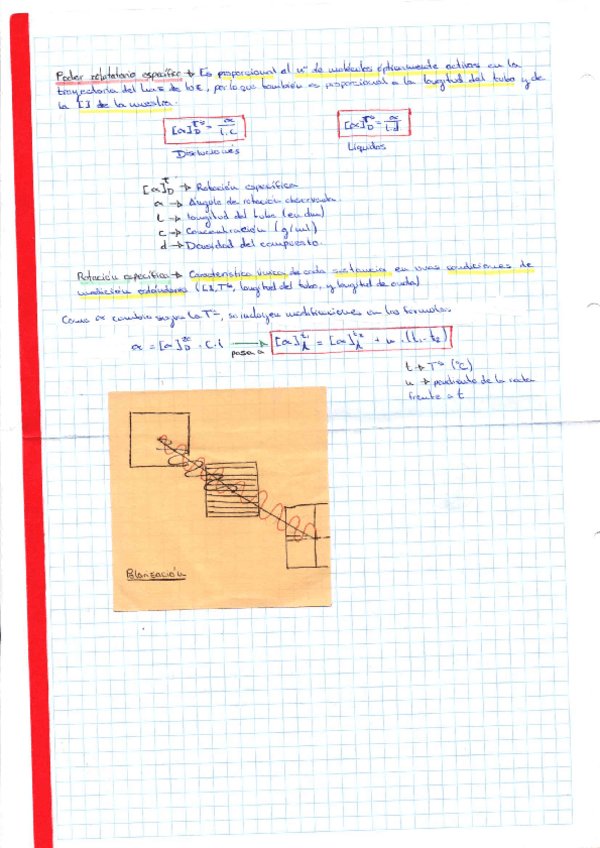 Poder rotatorio específico → Es proporcional al nº de moléculas ópticamente activas en la
trayectoria del haz de luz, por lo que también es proporcional a la longitud del tubo y de
la [ ] de la muestra.
[α]_D^Tª = α / l.c    [α]_D^Tª = α / l.d
Disoluciones    Líquidos
[α]_D^T → Rotación específica
α → Ángulo de rotación observada.
l → longitud del tubo (en dm)
c → Concentración (g/ml)
d → Densidad del compuesto.
Rotación específica → Característica única de cada sustancia en unas condiciones de
medición estándares ([ ], Tª, longitud del tubo, y longitud de onda)
Como α cambia según la Tª, se incluyen modificaciones en las fórmulas.
α = [α]_D . c . l → pasa a [α]^t₁ = [α]^t₂ + n . (t₁ - t₂)
t → Tª (ºC)
n → pendiente de la recta
frente a t
Polarización